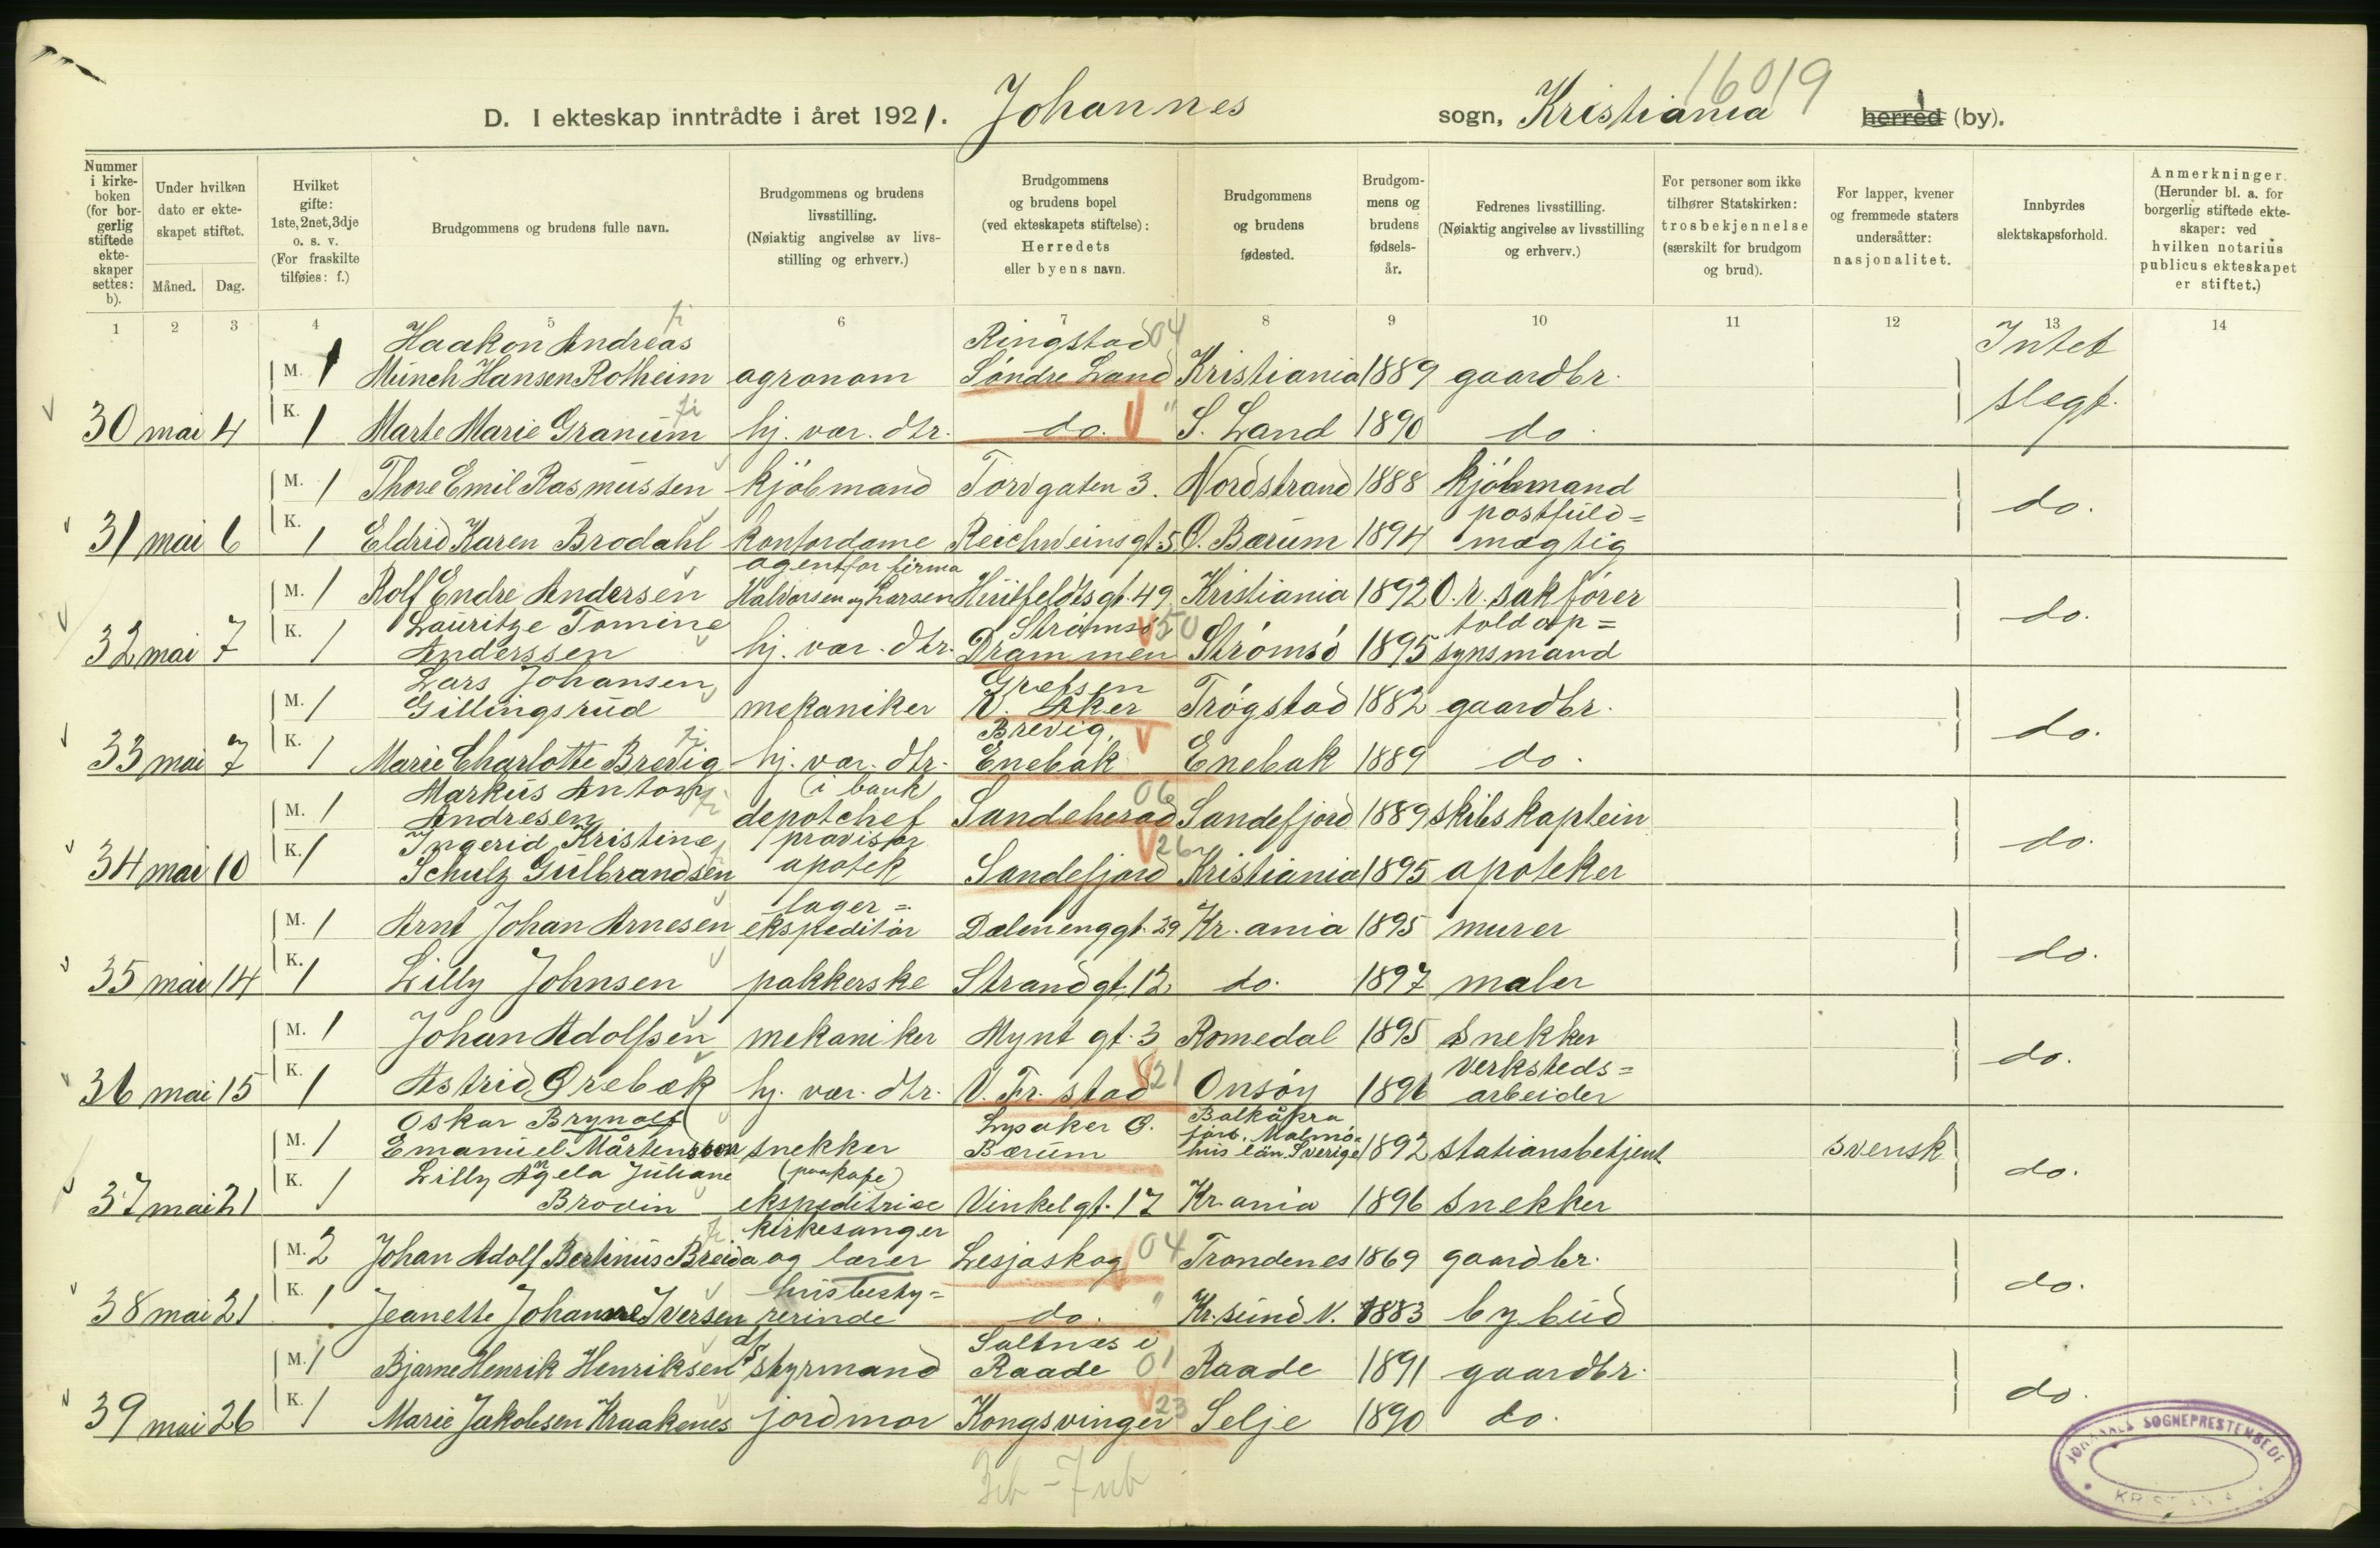 16019
D. I ekteskap inntrådte i året 1921. Johannes sogn, Kristiania herred (by).
Nummer i kirke-boken (for bor-gerlig stiftede ekte-skaper settes: b).
Under hvilken dato er ekte-skapet stiftet.
Måned. Dag.
Hvilket gifte: 1ste, 2net, 3dje o. s. v. (For fraskilte tilføies: f.)
Brudgommens og brudens fulle navn.
Brudgommens og brudens livsstilling. (Nøiaktig angivelse av livs-stilling og erhverv.)
Brudgommens og brudens bopel (ved ekteskapets stiftelse): Herredets eller byens navn.
Brudgommens og brudens fødested.
Brudgom-mens og brudens fødsels-år.
Fedrenes livsstilling. (Nøiaktig angivelse av livsstilling og erhverv.)
For personer som ikke tilhører Statskirken: trosbekjennelse (særskilt for brudgom og brud).
For lapper, kvener og fremmede staters undersåtter: nasjonalitet.
Innbyrdes slektskapsforhold.
Anmerkninger. (Herunder bl. a. for borgerlig stiftede ekte-skaper: ved hvilken notarius publicus ekteskapet er stiftet.)
1 2 3 4 5 6 7 8 9 10 11 12 13 14
M. 1 Haakon Andreas Münch Hansen Rotheim agronom Ringstad 04 Søndre Land Kristiania 1889 gaardbr. Intet slegt.
30 mai 4 K. 1 Marte Marie Granum hj. vær. dtr. do. " S. Land 1890 do.
M. 1 Thore Emil Rasmussen kjøbmand Torvgaten 3. Nordstrand 1888 kjøbmand do.
31 mai 6 K. 1 Eldrid Karen Brodahl kontordame Reichweinsgt. 5 Ø. Bærum 1894 postfuld=mægtig
M. 1 Rolf Endre Andersen agent for firma Halvorsen og Larsen Huitfeldtsgt. 49 Kristiania 1892 O.r. sakfører do.
32 mai 7 K. 1 Lauritze Tomine Anderssen hj. vær. dtr. Strømsø 50 Drammen Strømsø 1895 toldop=synsmand
M. 1 Lars Johansen Gillingsrud mekaniker Grefsen V. Aker Trøgstad 1882 gaardbr. do.
33 mai 7 K. 1 Marie Charlotte Brevig hj. vær. dtr. Brevig, Enebak Enebak 1889 do.
M. 1 Markus Anton Andresen (i bank) depotchef 06 Sandeherad Sandefjord 1889 skibskaptein do.
34 mai 10 K. 1 Ingerid Kristine Schulz Gulbrandsen provisor apotek 26 Sandefjord Kristiania 1895 apoteker
M. 1 Arnt Johan Arnesen lager=ekspeditør Dælenenggt. 29 Kr.ania 1895 murer do.
35 mai 14 K. 1 Lilly Johnsen pakkerske Strandgt. 12 do. 1897 maler
M. 1 Johan Adolfsen mekaniker Mynt gt. 3 Romedal 1895 snekker do.
36 mai 15 K. 1 Astrid Ørebæk hj. vær. dtr. 21 V. Fr.stad Onsøy 1896 verksteds=arbeider
M. 1 Oskar Brynolf Emanuel Mårtensson snekker Lysaker Ø. Bærum Balkåkra förs. Malmö=hus län. Sverige 1892 stationsbetjent svensk do.
37 mai 21 K. 1 Lilly Angela Juliane Brodin (paa kafe) ekspeditrise Vinkelgt. 17 Kr.ania 1896 snekker
M. 2 Johan Adolf Bertinius Breida kirkesanger og lærer Lesjaskog 04 Trondenes 1869 gaardbr. do.
38 mai 21 K. 1 Jeanette Johanne Iversen husbesty=rerinde do. " Kr.sund N. 1883 bybud
M. 1 Bjarne Henrik Henriksen styrmand Saltnes i Raade 01 Raade 1891 gaardbr. do.
39 mai 26 K. 1 Marie Jakobsen Kraakenes jordmor 23 Kongsvinger Selje 1890 do.
JOHANNES SOGNEPRESTEMBEDE
KRISTIANIA